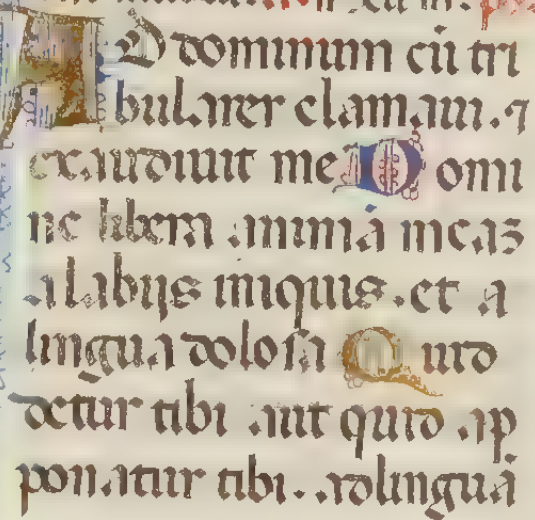 AD dominum cū tri
bularer clamaui. ⁊
exaudiuit me Domi
ne libera animā meaȝ
a labijs iniquis. et a
lingua dolosa Quid
detur tibi aut quid ap
ponatur tibi. adlinguā